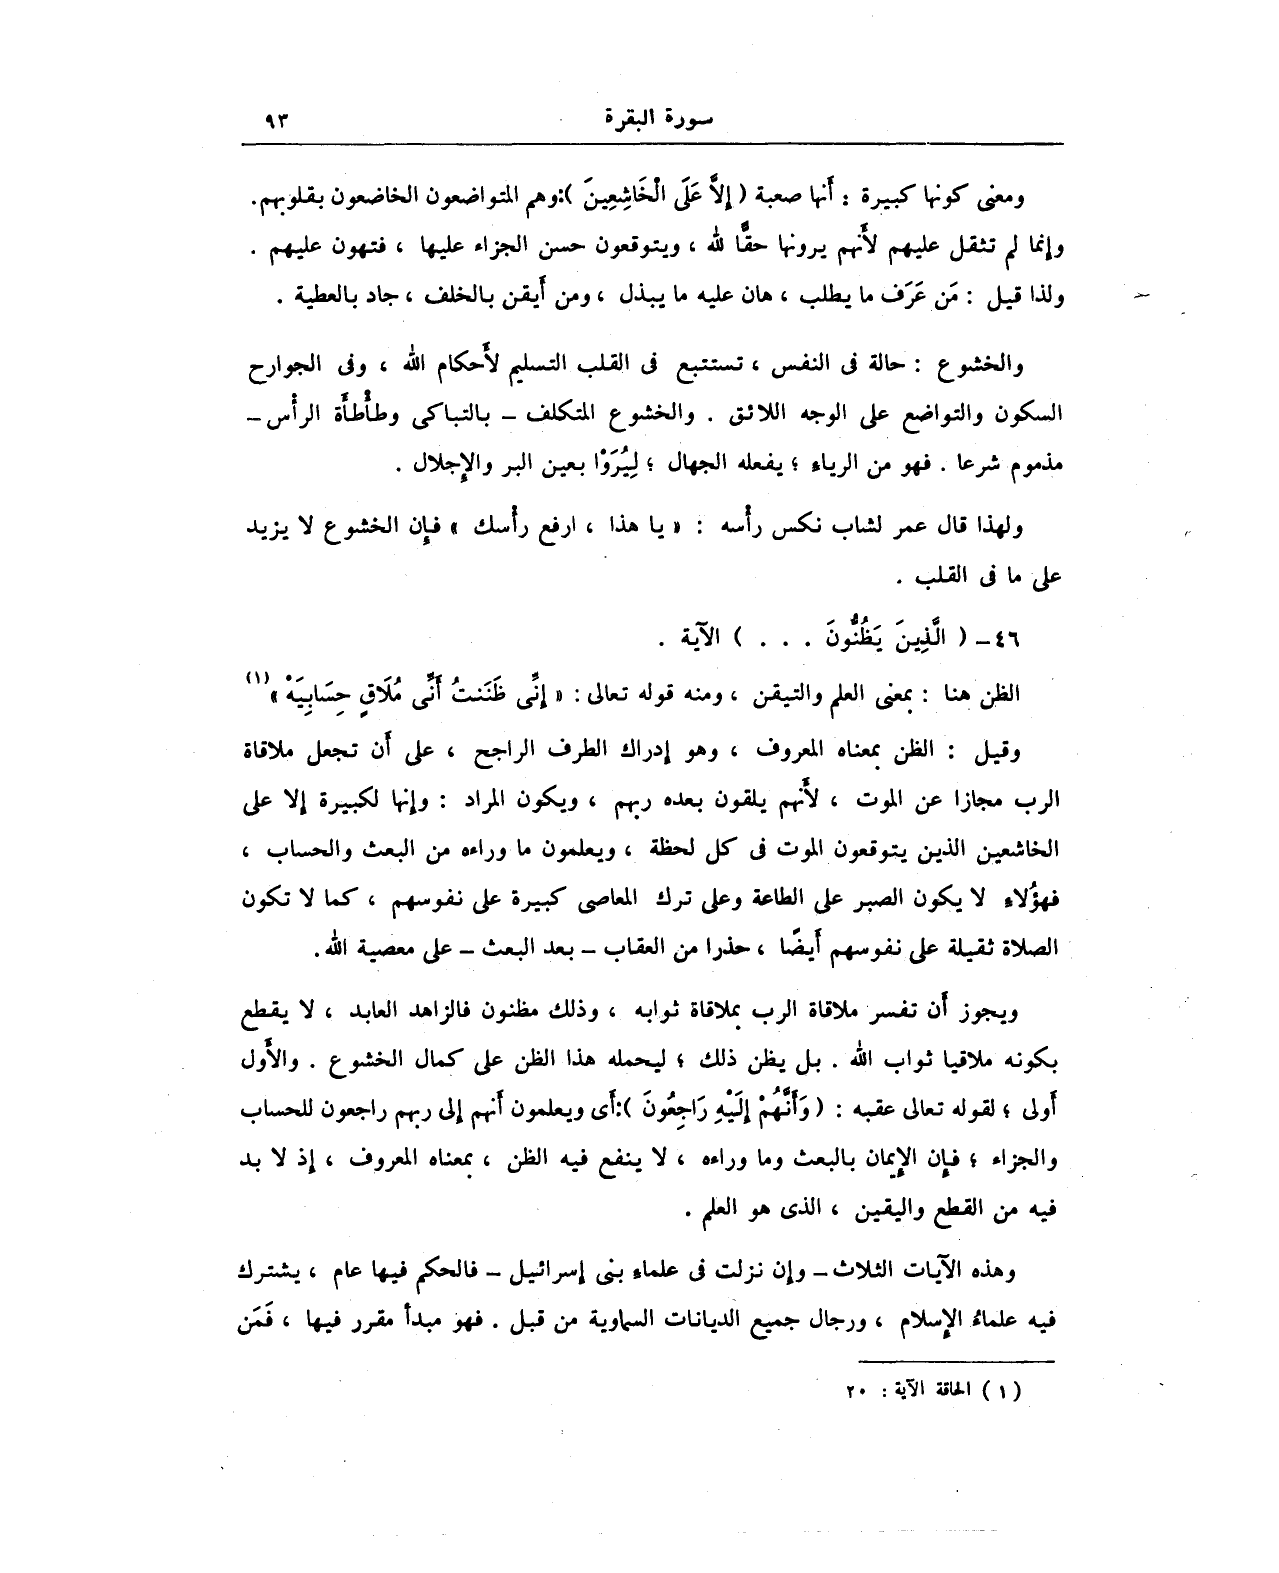 سورة البقرة ٩٣
ومعنى كونها كبيرة : أنها صعبة ( إِلاَّ عَلَى الْخَاشِعِينَ ):وهم المتواضعون الخاضعون بقلوبهم.
وإنما لم تثقل عليهم لأنهم يرونها حقًّا لله ، ويتوقعون حسن الجزاء عليها ، فتهون عليهم .
ولذا قيل : مَن عَرَف ما يطلب ، هان عليه ما يبذل ، ومن أيقن بالخلف ، جاد بالعطية .
والخشوع : حالة فى النفس ، تستتبع فى القلب التسليم لأحكام الله ، وفى الجوارح
السكون والتواضع على الوجه اللائق . والخشوع المتكلف – بالتباكى وطأطأة الرأس –
مذموم شرعا . فهو من الرياء ؛ يفعله الجهال ؛ لِيُرَوْا بعين البر والإجلال .
ولهذا قال عمر لشاب نكس رأسه : « يا هذا ، ارفع رأسك » فإن الخشوع لا يزيد
على ما فى القلب .
٤٦– ( الَّذِينَ يَظُنُّونَ . . . ) الآية .
الظن هنا : بمعنى العلم والتيقن ، ومنه قوله تعالى : « إِنِّى ظَنَنتُ أَنِّى مُلَاقٍ حِسَابِيَهْ » (١)
وقيل : الظن بمعناه المعروف ، وهو إدراك الطرف الراجح ، على أن تجعل ملاقاة
الرب مجازا عن الموت ، لأنهم يلقون بعده ربهم ، ويكون المراد : وإنها لكبيرة إلا على
الخاشعين الذين يتوقعون الموت فى كل لحظة ، ويعلمون ما وراءه من البعث والحساب ،
فهؤُلاء لا يكون الصبر على الطاعة وعلى ترك المعاصى كبيرة على نفوسهم ، كما لا تكون
الصلاة ثقيلة على نفوسهم أيضًا ، حذرا من العقاب – بعد البعث – على معصية الله .
ويجوز أن تفسر ملاقاة الرب بملاقاة ثوابه ، وذلك مظنون فالزاهد العابد ، لا يقطع
بكونه ملاقيا ثواب الله . بل يظن ذلك ؛ ليحمله هذا الظن على كمال الخشوع . والأول
أولى ؛ لقوله تعالى عقبه : ( وَأَنَّهُمْ إِلَيْهِ رَاجِعُونَ ):أى ويعلمون أنهم إلى ربهم راجعون للحساب
والجزاء ؛ فإن الإيمان بالبعث وما وراءه ، لا ينفع فيه الظن ، بمعناه المعروف ، إذ لا بد
فيه من القطع واليقين ، الذى هو العلم .
وهذه الآيات الثلاث – وإن نزلت فى علماء بنى إسرائيل – فالحكم فيها عام ، يشترك
فيه علماءُ الإسلام ، ورجال جميع الديانات السماوية من قبل . فهو مبدأ مقرر فيها ، فَمَن
(١) الحاقة الآية : ٢٠